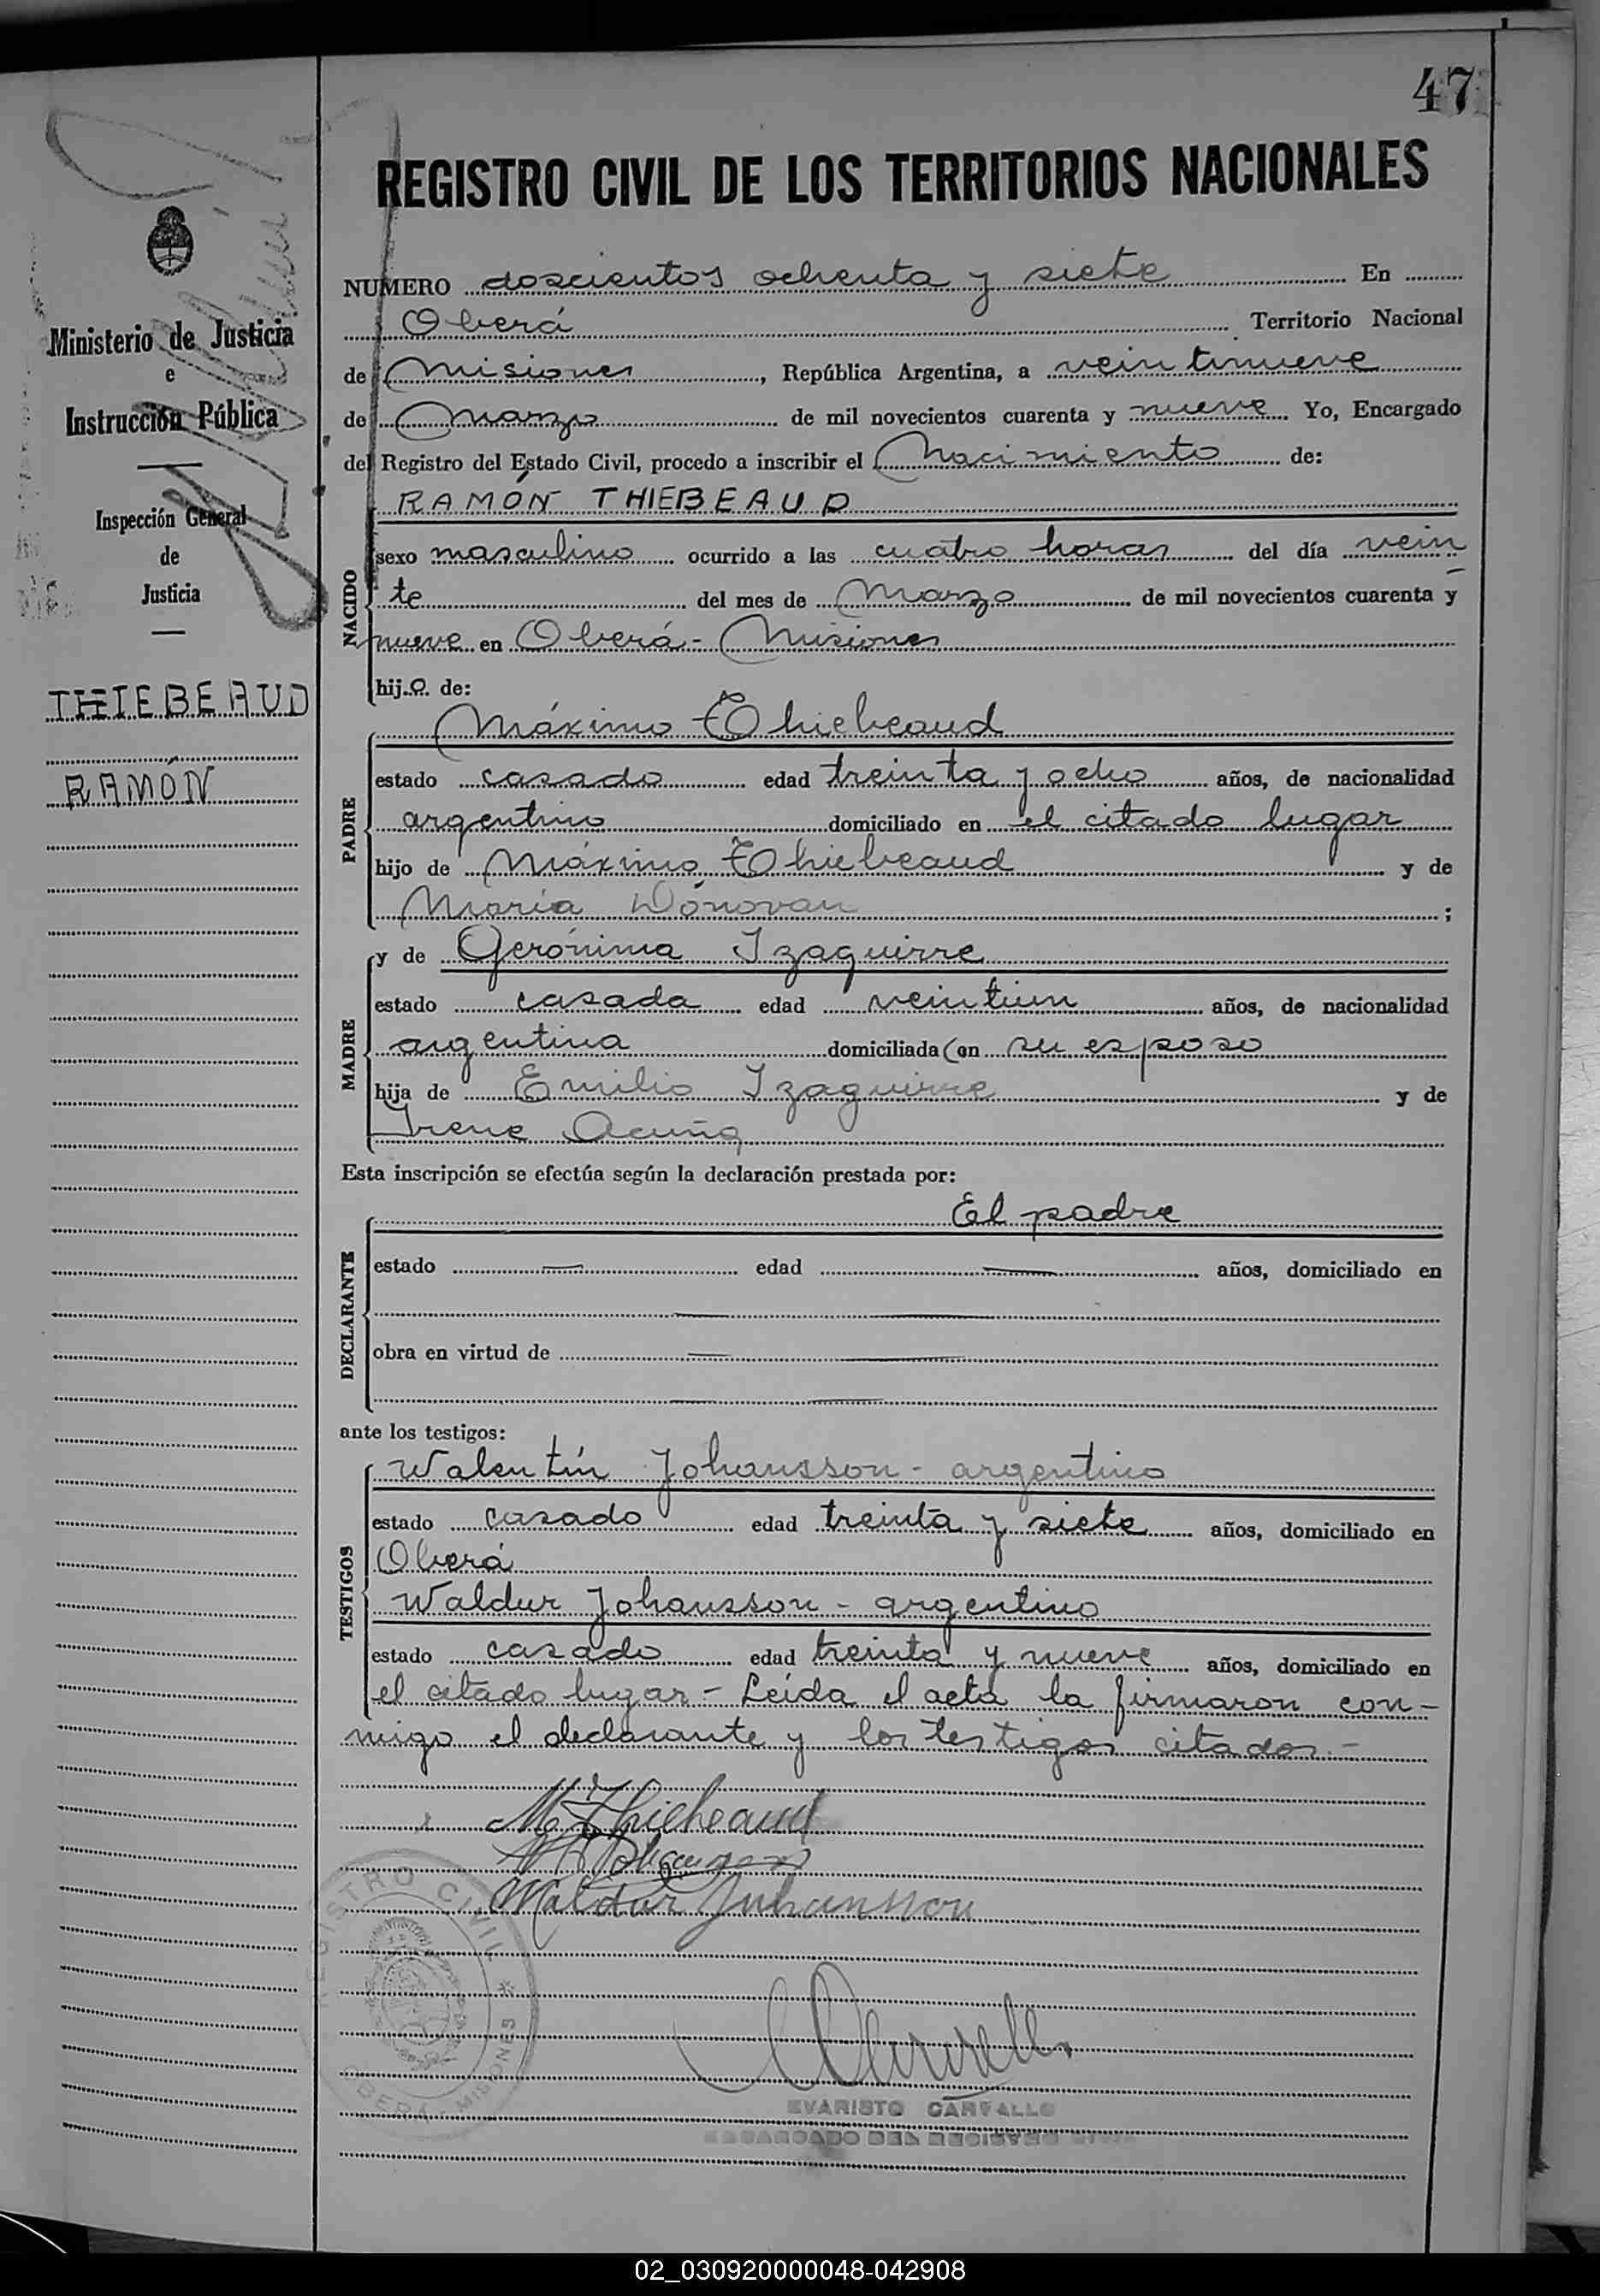 47
REGISTRO CIVIL DE LOS TERRITORIOS NACIONALES
Ministerio de Justicia
e
Instrucción Pública
Inspección General
de
Justicia
THIEBEAUD
RAMÓN
NUMERO doscientos ochenta y siete En
Oberá Territorio Nacional
de Misiones, República Argentina, a veintinueve
de Marzo de mil novecientos cuarenta y nueve Yo, Encargado
del Registro del Estado Civil, procedo a inscribir el Nacimiento de:
NACIDO
RAMÓN THIEBEAUD
sexo masculino ocurrido a las cuatro horas del día vein
te del mes de Marzo de mil novecientos cuarenta y
nueve en Oberá - Misiones
hijo de:
PADRE
Máximo Thiebeaud
estado casado edad treinta y ocho años, de nacionalidad
argentino domiciliado en el citado lugar
hijo de Máximo Thiebeaud y de
María Dónovan ;
MADRE
y de Gerónima Izaguirre
estado casada edad veintiun años, de nacionalidad
argentina domiciliada con su esposo
hija de Emilio Izaguirre y de
Irene Acuña
Esta inscripción se efectúa según la declaración prestada por:
DECLARANTE
El padre
estado — edad — años, domiciliado en
obra en virtud de
ante los testigos:
TESTIGOS
Walentín Johansson - argentino
estado casado edad treinta y siete años, domiciliado en
Oberá
Waldur Johansson - argentino
estado casado edad treinta y nueve años, domiciliado en
el citado lugar - Leída el acta la firmaron con-
migo el declarante y los testigos citados.-
Mº Thiebeaud
Waldur Johansson
REGISTRO CIVIL * OBERÁ - MISIONES
EVARISTO CARVALLO
ENCARGADO DEL REGISTRO CIVIL
02_030920000048-042908